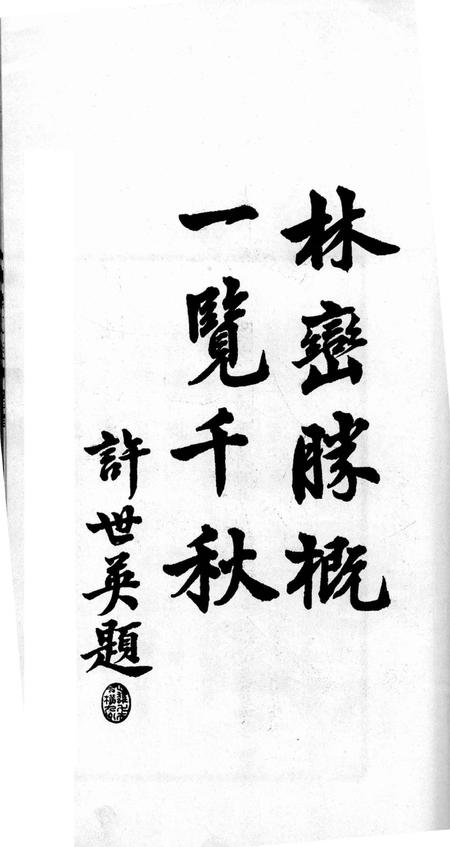 林巒勝概
一覽千秋
許世英題